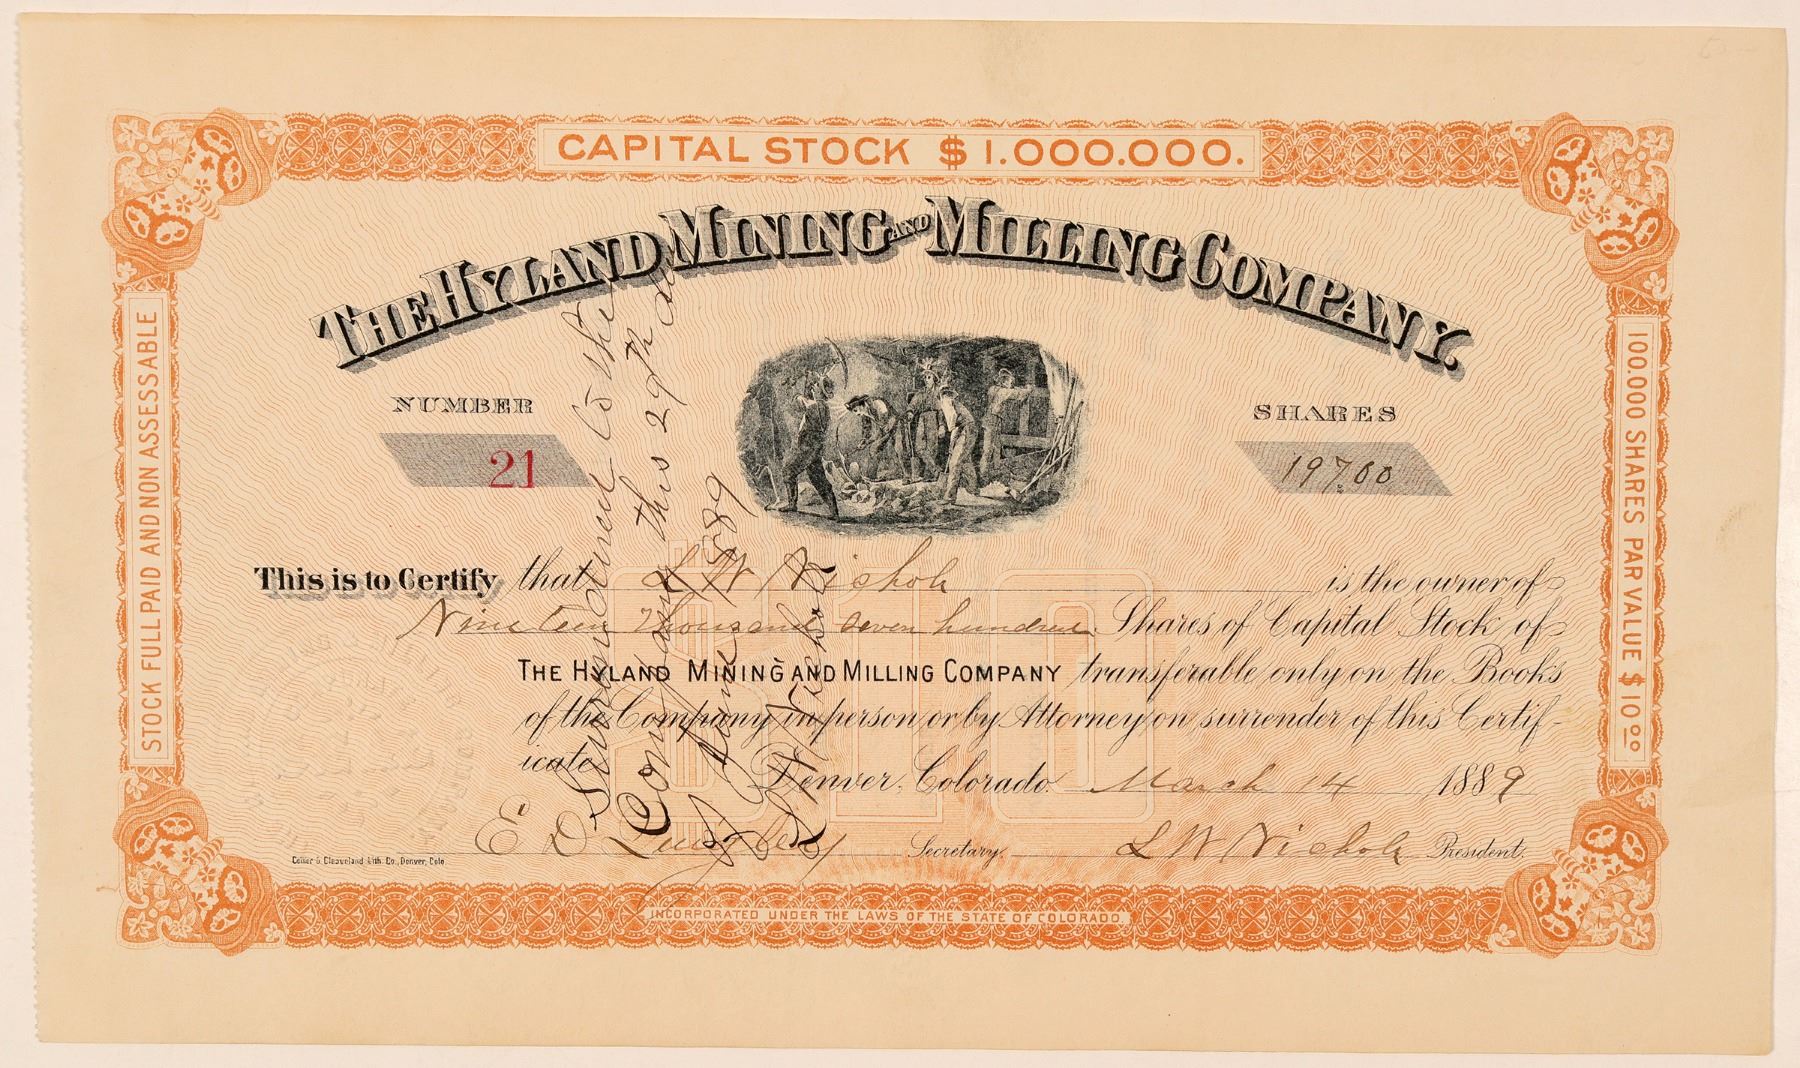 CAPITAL STOCK $1.000.000.
THE HYLAND MINING AND MILLING COMPANY.
NUMBER
SHARES
21
19700
STOCK FULL PAID AND NON ASSESSABLE
100.000 SHARES PAR VALUE $10 00
This is to Certify that L W Nichols is the owner of
Nineteen Thousand seven hundred Shares of Capital Stock of
THE HYLAND MINING AND MILLING COMPANY transferable only on the Books
of the Company in person or by Attorney on surrender of this Certif-
icate Denver, Colorado March 14 1889
$10
E D Secretary. L W Nichols President.
INCORPORATED UNDER THE LAWS OF THE STATE OF COLORADO.
Surrendered to the
Company this 29th day
June 1889
L W Nichols
Lith. Co., Denver, Colo.